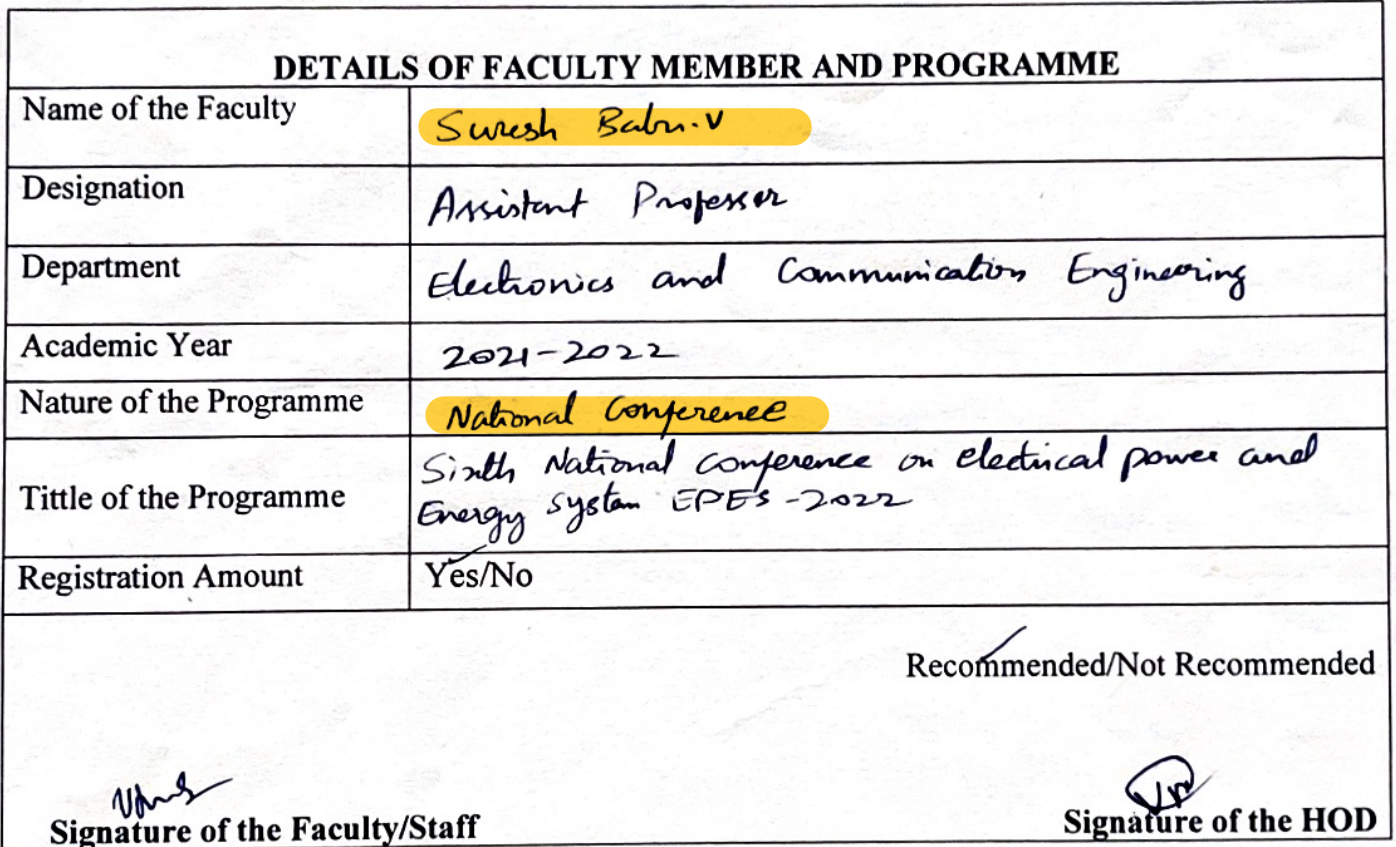 DETAILS OF FACULTY MEMBER AND PROGRAMME
Name of the Faculty
Suresh Babu.V
Designation
Assistant Professor
Department
Electronics and Communication Engineering
Academic Year
2021-2022
Nature of the Programme
National Conference
Tittle of the Programme
Sixth National conference on electrical power and
Energy system EPES -2022
Registration Amount
Yes/No
Recommended/Not Recommended
Signature of the Faculty/Staff
Signature of the HOD